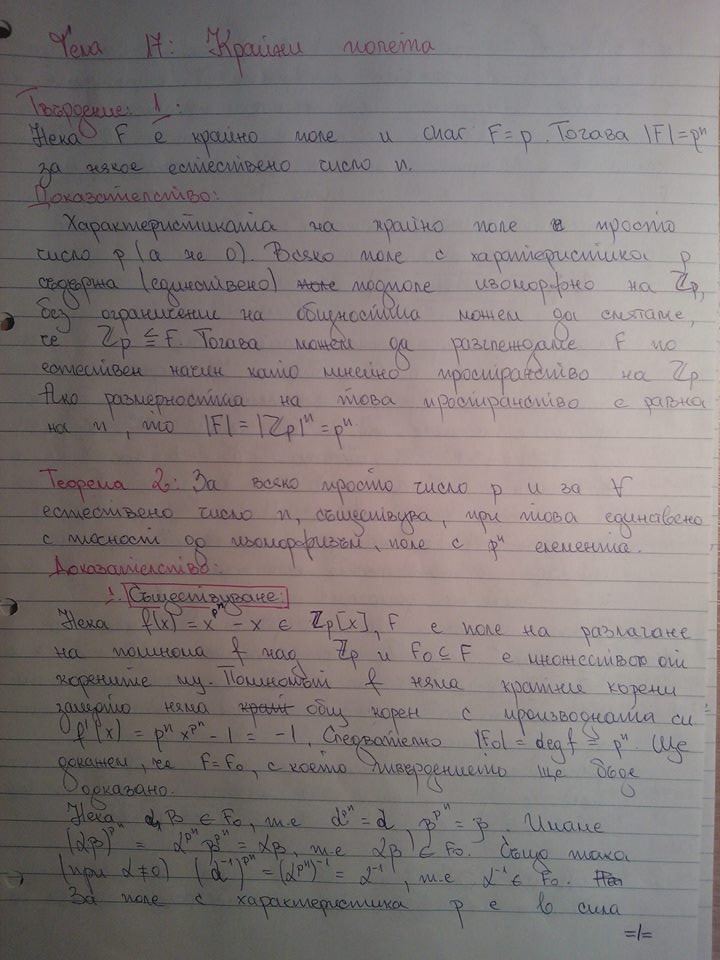 Тема 17: Крайни полета
Твърдение: 1:
Нека F е крайно поле и char F = p. Тогава |F| = pⁿ
за някое естествено число n.
Доказателство:
Характеристиката на крайно поле е просто
число p (а не 0). Всяко поле с характеристика p
съдържа (единствено) подполе изоморфно на ℤp,
без ограничение на общността можем да смятаме,
че ℤp ⊆ F. Тогава можем да разглеждаме F по
естествен начин като линейно пространство на ℤp
Ако размерността на това пространство е равна
на n, то |F| = |ℤp|ⁿ = pⁿ
Теорема 2: За всяко просто число p и за ∀
естествено число n, съществува, при това единствено
с точност до изоморфизъм, поле с pⁿ елемента.
Доказателство:
1. Съществуване:
Нека f(x) = x^pⁿ - x ∈ ℤp[x], F е поле на разлагане
на полинома f над ℤp и F₀ ⊆ F е множеството от
корените му. Полиномът f няма кратни корени
защото няма общ корен с производната си:
f'(x) = pⁿ x^pⁿ - 1 = -1. Следователно |F₀| = deg f = pⁿ. Ще
докажем, че F = F₀, с което твърдението ще бъде
доказано.
Нека α, β ∈ F₀, т.е α^pⁿ = α, β^pⁿ = β. Имаме
(αβ)^pⁿ = α^pⁿ β^pⁿ = αβ, т.е αβ ∈ F₀. Също така
(при α ≠ 0) (α⁻¹)^pⁿ = (α^pⁿ)⁻¹ = α⁻¹, т.е α⁻¹ ∈ F₀.
За поле с характеристика p е в сила
=1=